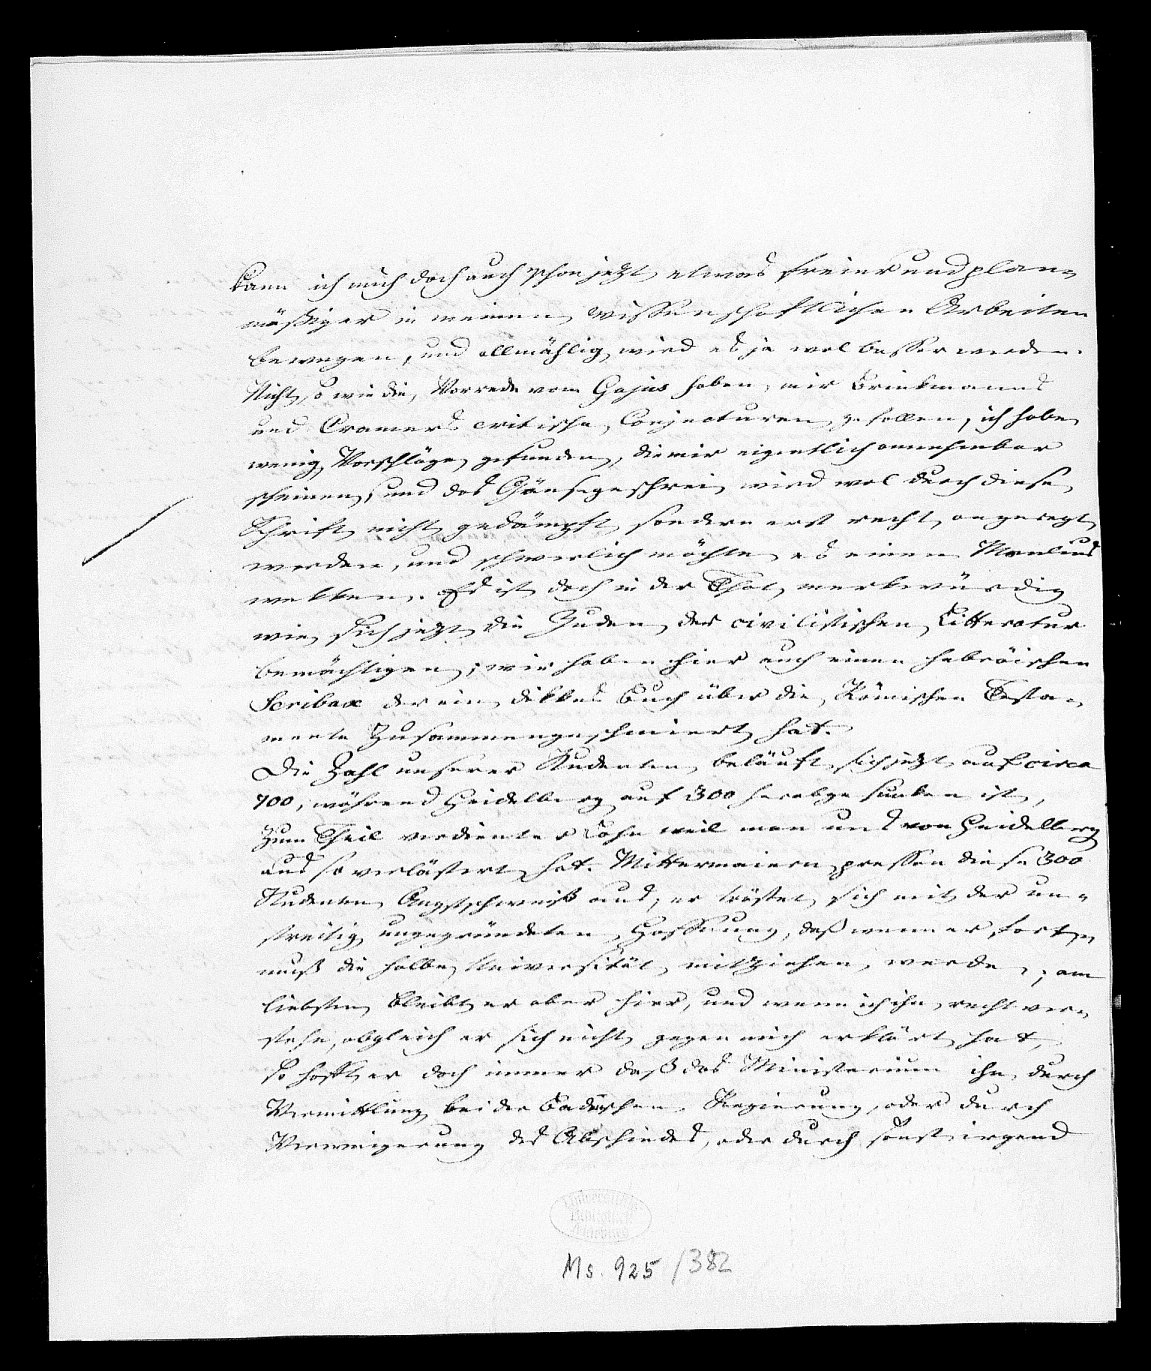 kann ich mich doch auch schon jetzt etwas freier und plan-
mäßiger in meinen wissenschaftlichen Arbeiten
bewegen, und allmählig wird es ja wol besser werden.
Nicht so wie die Vorrede vom Gajus haben mir Brinkmanns
und Cramers critische Conjecturen gefallen, ich habe
wenig Vorschläge gefunden, die mir eigentlich annehmbar
scheinen, und das Gänsegeschrei wird wol durch diese
Schrift nicht gedämpft, sondern erst recht angeregt
werden, und schwerlich möchte es einen Manlius
wekken. Es ist doch in der That merkwürdig
wie sich jetzt die Juden der civilistischen Litteratur
bemächtigen; wir haben hier auch einen hebräischen
Scribax der ein dikkes Buch über die Römischen Testa-
mente zusammengeschmiert hat.
Die Zahl unserer Studenten beläuft sich jetzt auf circa
700, während Heidelberg auf 300 herabgesunken ist,
zum Theil verdienter Lohn weil man uns von Heidelberg
aus so verlästert hat. Mittermaiern pressen diese 300
Studenten Angstschweiß aus, er tröstet sich mit der un-
streitig ungegründeten Hoffnung, daß wenn er fort
muß die halbe Universität mitziehen werde; am
liebsten bleibt er aber hier, und wenn ich ihn recht ver-
stehe, obgleich er sich nicht gegen mich erklärt hat,
so hofft er doch immer daß das Ministerium ihn durch
Vermittlung bei der Badischen Regierung, oder durch
Verweigerung des Abschiedes, oder durch sonst irgend
Ms. 925 /382